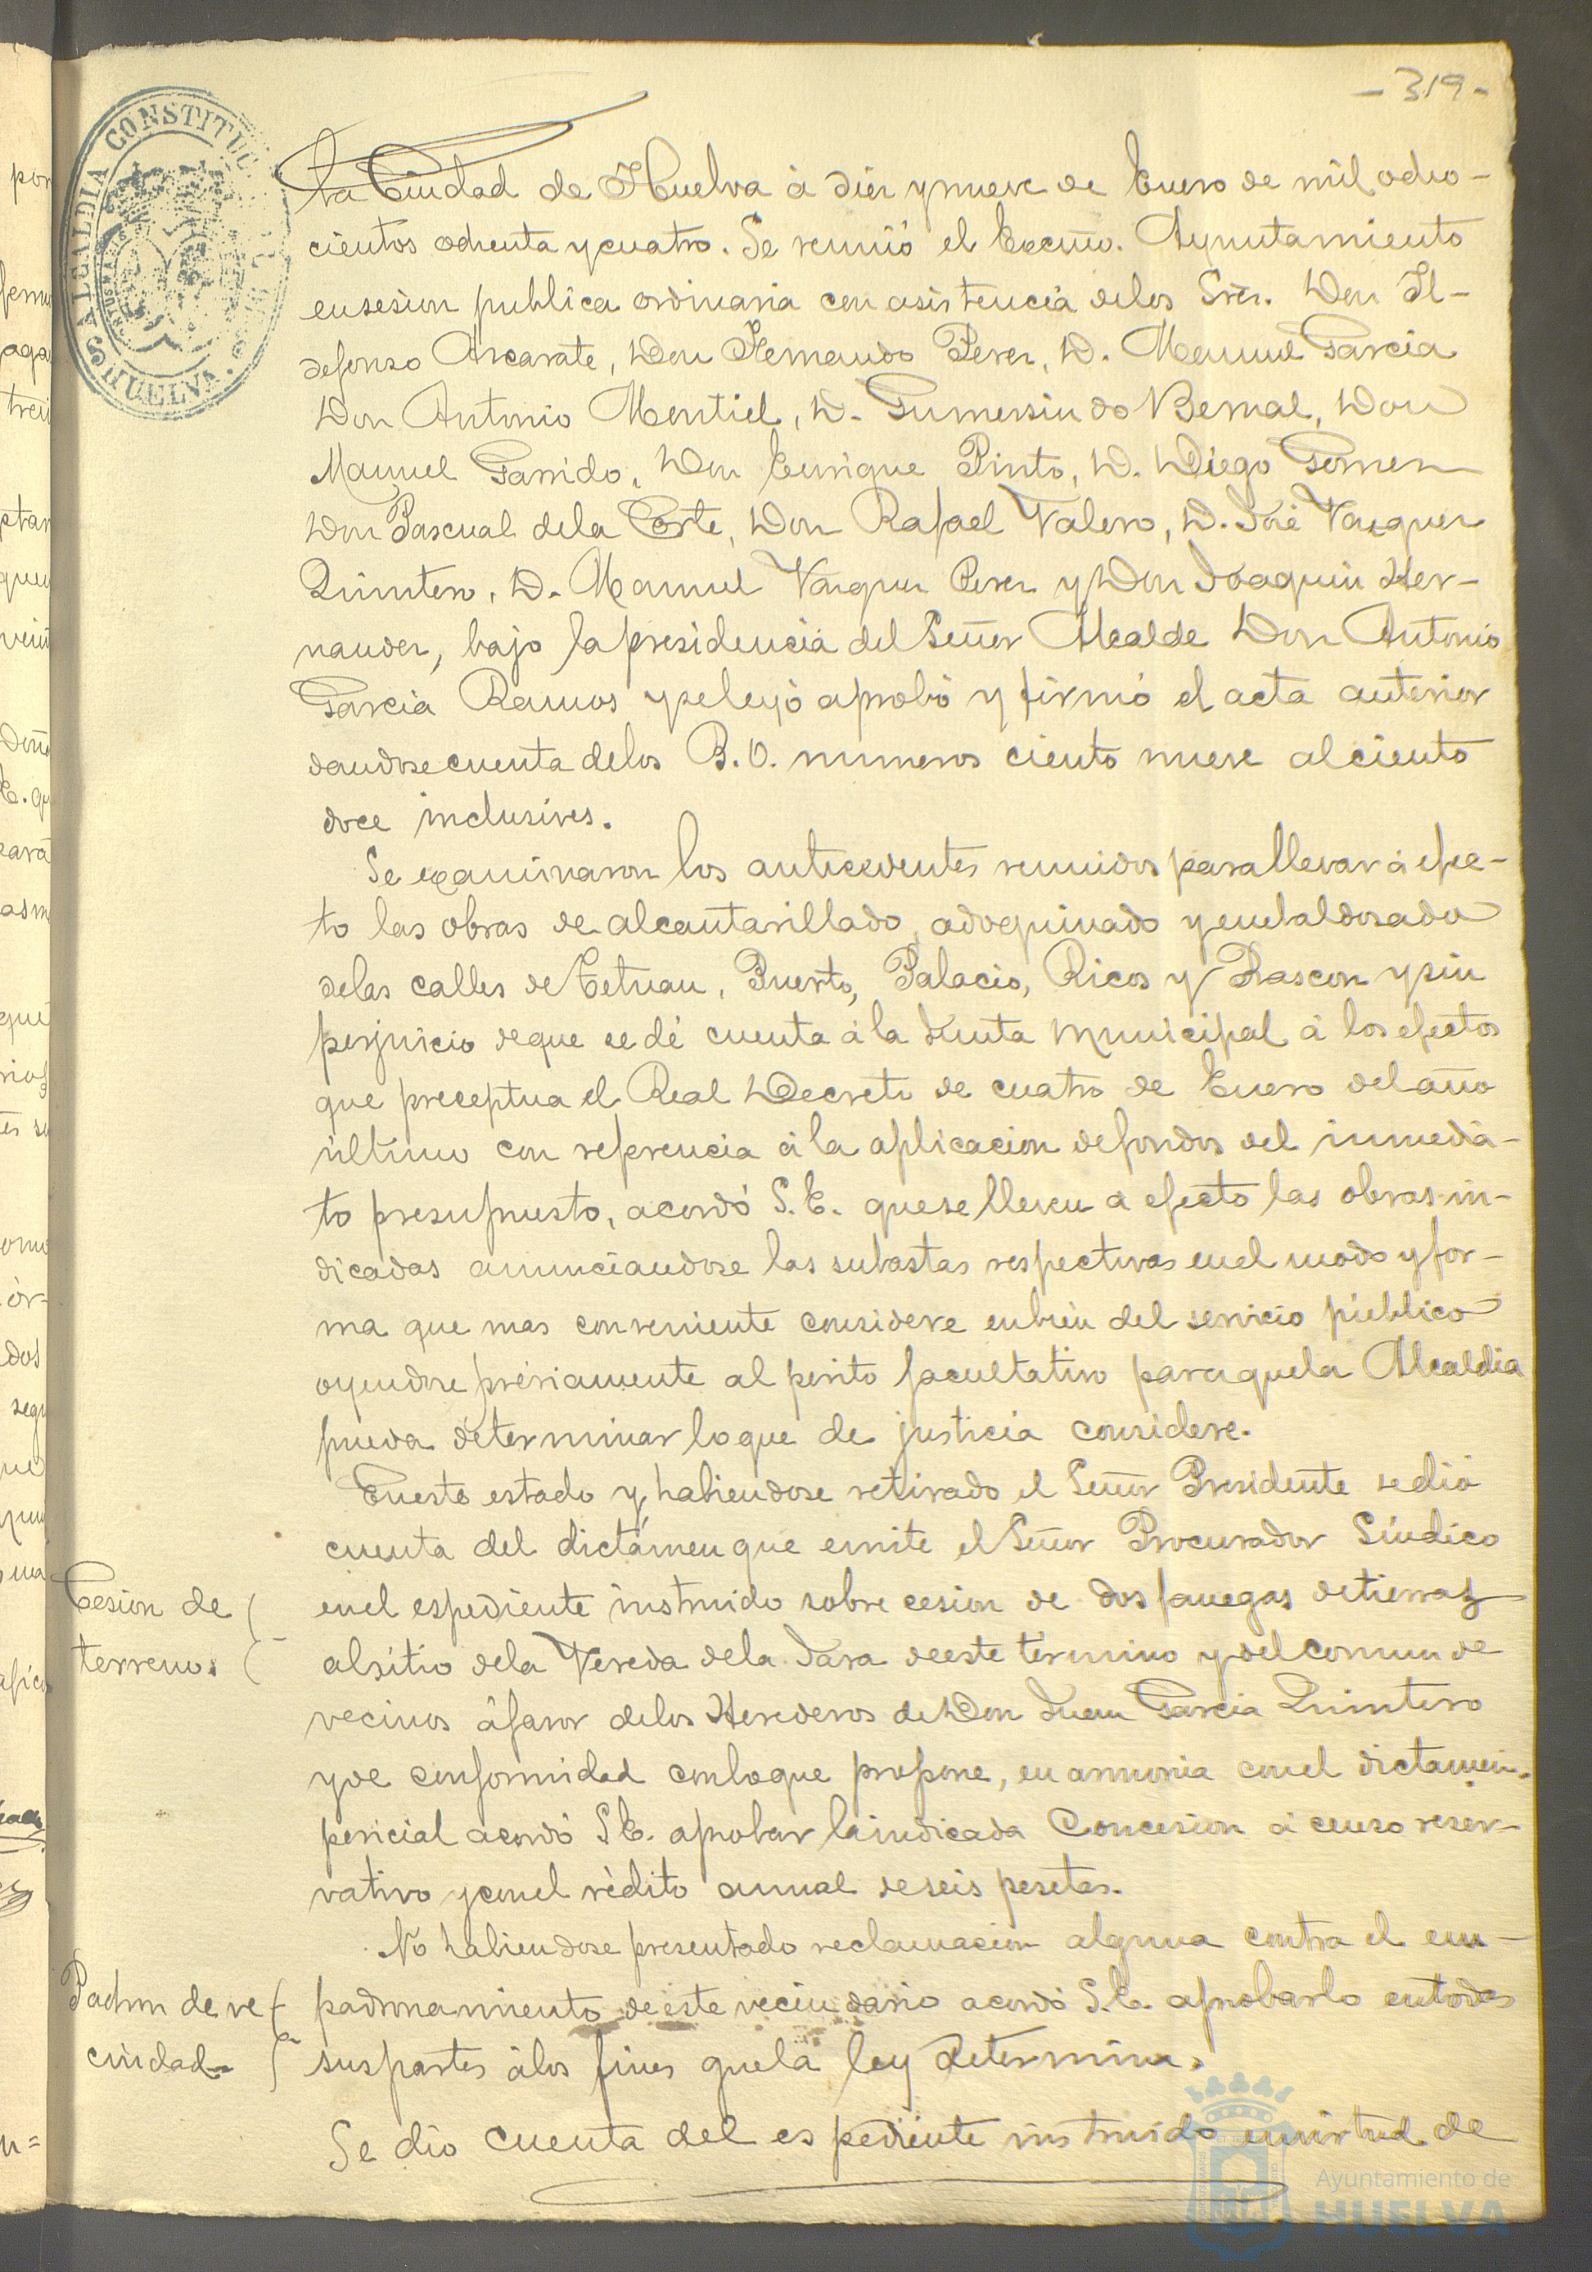 - 319 -
ALCALDIA CONSTITUC
HUELVA.
la Ciudad de Huelva á diez y nueve de Enero de mil ocho-
cientos ochenta y cuatro. Se reunió el Excmo. Ayuntamiento
en sesion publica ordinaria con asistencia de los Sres. Don Il-
defonso Ascarate, Don Fernando Perez, D. Manuel Garcia
Don Antonio Montiel, D. Gumersindo Bernal, Don
Manuel Garrido, Don Enrique Pinto, D. Diego Gomez
Don Pascual de la Corte, Don Rafael Valero, D. José Vazquez
Quintero, D. Manuel Vazquez Perez y Don Joaquin Her-
nandez, bajo la presidencia del Señor Alcalde Don Antonio
Garcia Ramos y se leyó aprobó y firmó el acta anterior
dandose cuenta de los B.O. numeros ciento nueve al ciento
doce inclusives.
Se examinaron los antecedentes reunidos para llevar á efec-
to las obras de alcantarillado, adoquinado y enbaldosado
de las calles de Tetuan, Puerto, Palacio, Ricos y Rascon y sin
perjuicio de que se dé cuenta á la Junta Municipal á los efectos
que preceptua el Real Decreto de cuatro de Enero del año
último con referencia á la aplicacion de fondos del inmedia-
to presupuesto, acordó S.E. que se lleven a efecto las obras in-
dicadas anunciandose las subastas respectivas en el modo y for-
ma que mas conveniente considere en bien del servicio público
oyendose préviamente al perito facultativo para que la Alcaldia
pueda determinar lo que de justicia considere.
En este estado y habiendose retirado el Señor Presidente se dió
cuenta del dictámen que emite el Señor Procurador Síndico
Cesion de
terrenos
en el espediente instruido sobre cesion de dos fanegas de tierras
al sitio de la Vereda de la Jara de este termino y del comun de
vecinos á favor de los Herederos de Don Juan Garcia Quintero
y de conformidad con lo que propone, en armonia con el dictamen
pericial acordó S.E. aprobar la indicada Concesion á censo reser-
vativo y con el rédito anual de seis pesetas.
No habiendose presentado reclamacion alguna contra el em-
Padron de ve
cindad
padronamiento de este vecindario acordó S.E. aprobarlo en todas
sus partes á los fines que la ley determina.
Se dio cuenta del espediente instruido en virtud de
Ayuntamiento de
HUELVA